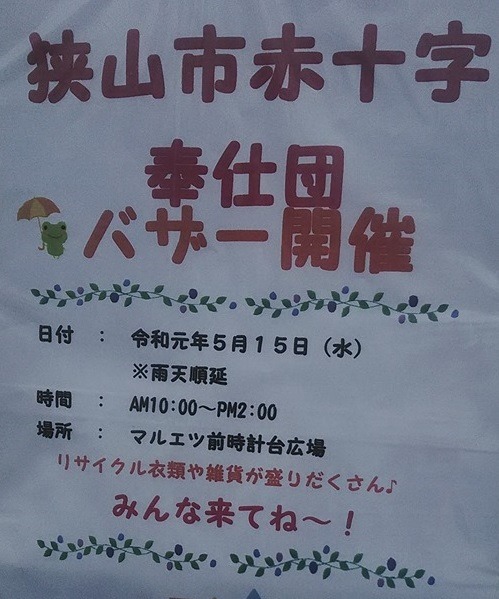 狭山市赤十字
奉仕団
バザー開催
日付 : 令和元年5月15日(水)
※雨天順延
時間 : AM10:00~PM2:00
場所 : マルエツ前時計台広場
リサイクル衣類や雑貨が盛りだくさん♪
みんな来てね～!